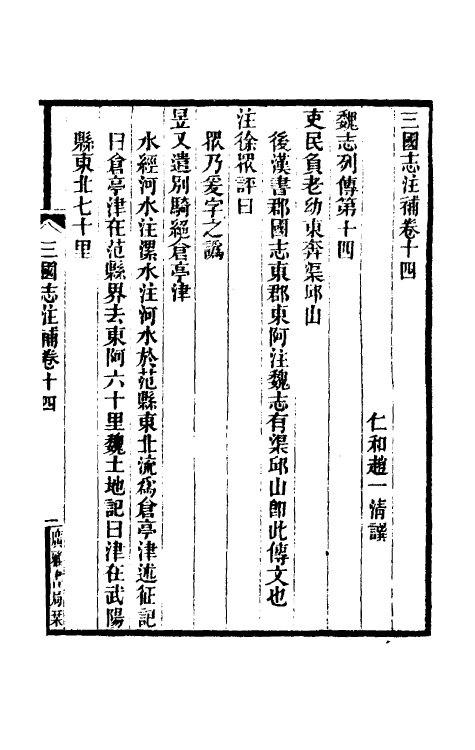 三國志注補卷十四
仁和趙一清譔
魏志列傳第十四
吏民負老幼東奔渠邱山
後漢書郡國志東郡東阿注魏志有渠邱山卽此傳文也
注徐眾評曰
眾乃爰字之譌
昱又遣別騎絕倉亭津
水經河水注漯水注河水於范縣東北流爲倉亭津述征記
曰倉亭津在范縣界去東阿六十里魏土地記曰津在武陽
縣東北七十里
三國志注補卷十四
一
廣雅書局栞